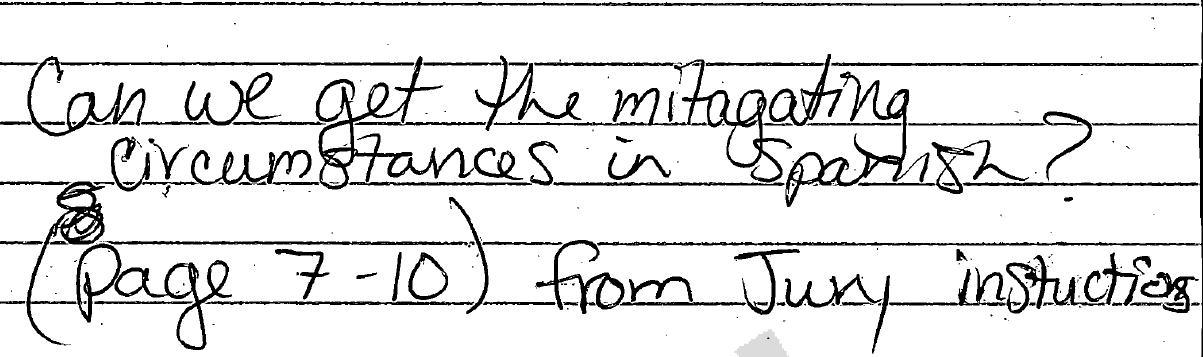 Can we get the mitagating
circumstances in Spanish?
(page 7-10) from Jury instuctions